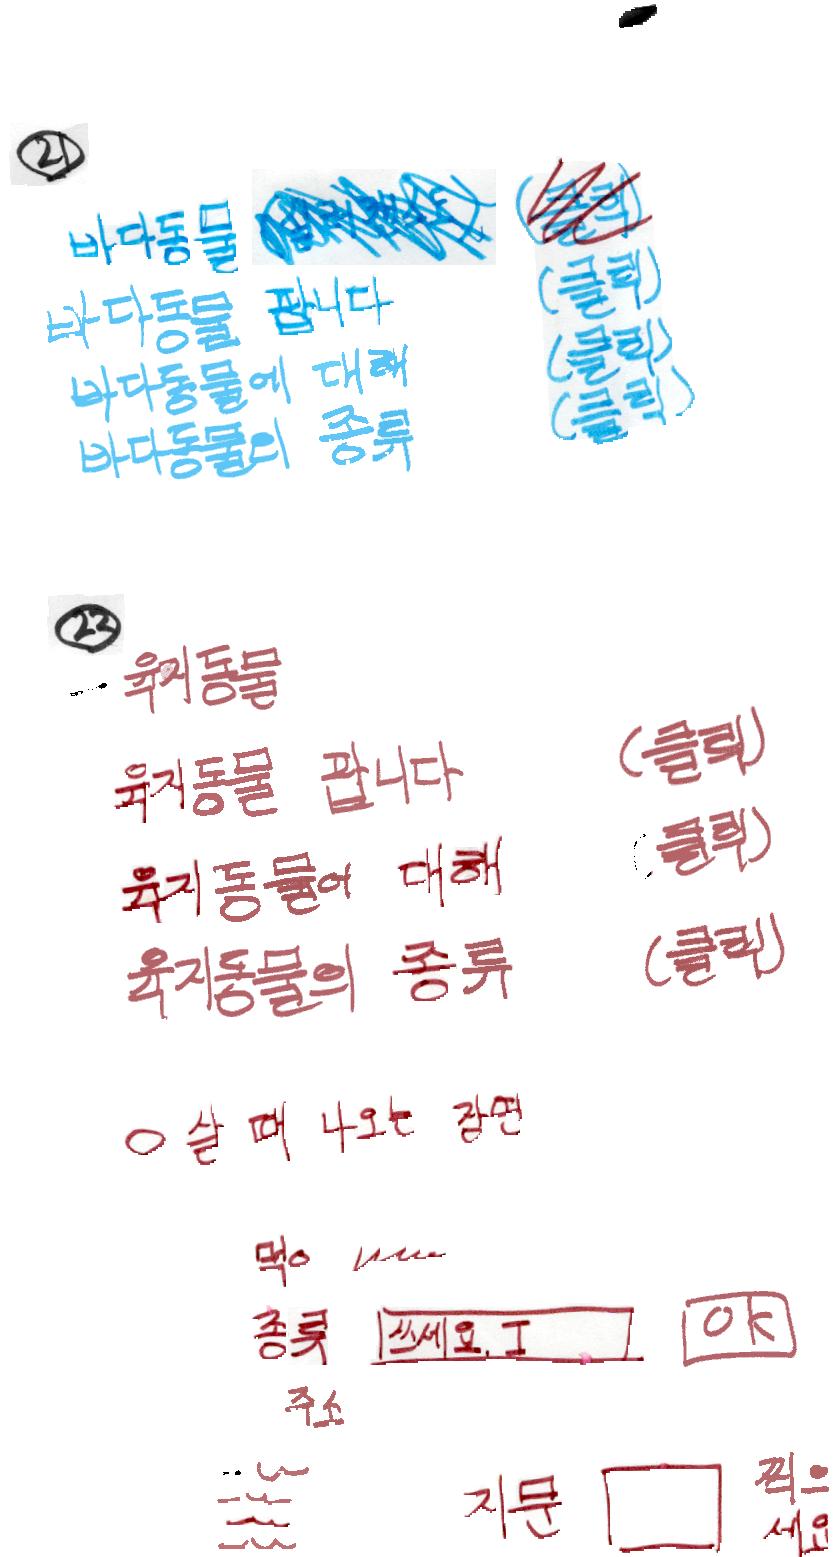 21
바다동물
바다동물 팝니다 (클릭)
바다동물에 대해 (클릭)
바다동물의 종류 (클릭)
22
육지동물
육지동물 팝니다 (클릭)
육지동물에 대해 (클릭)
육지동물의 종류 (클릭)
○ 살 때 나오는 장면
먹이
종류 쓰세요. I OK
주소
지문 찍으
세요